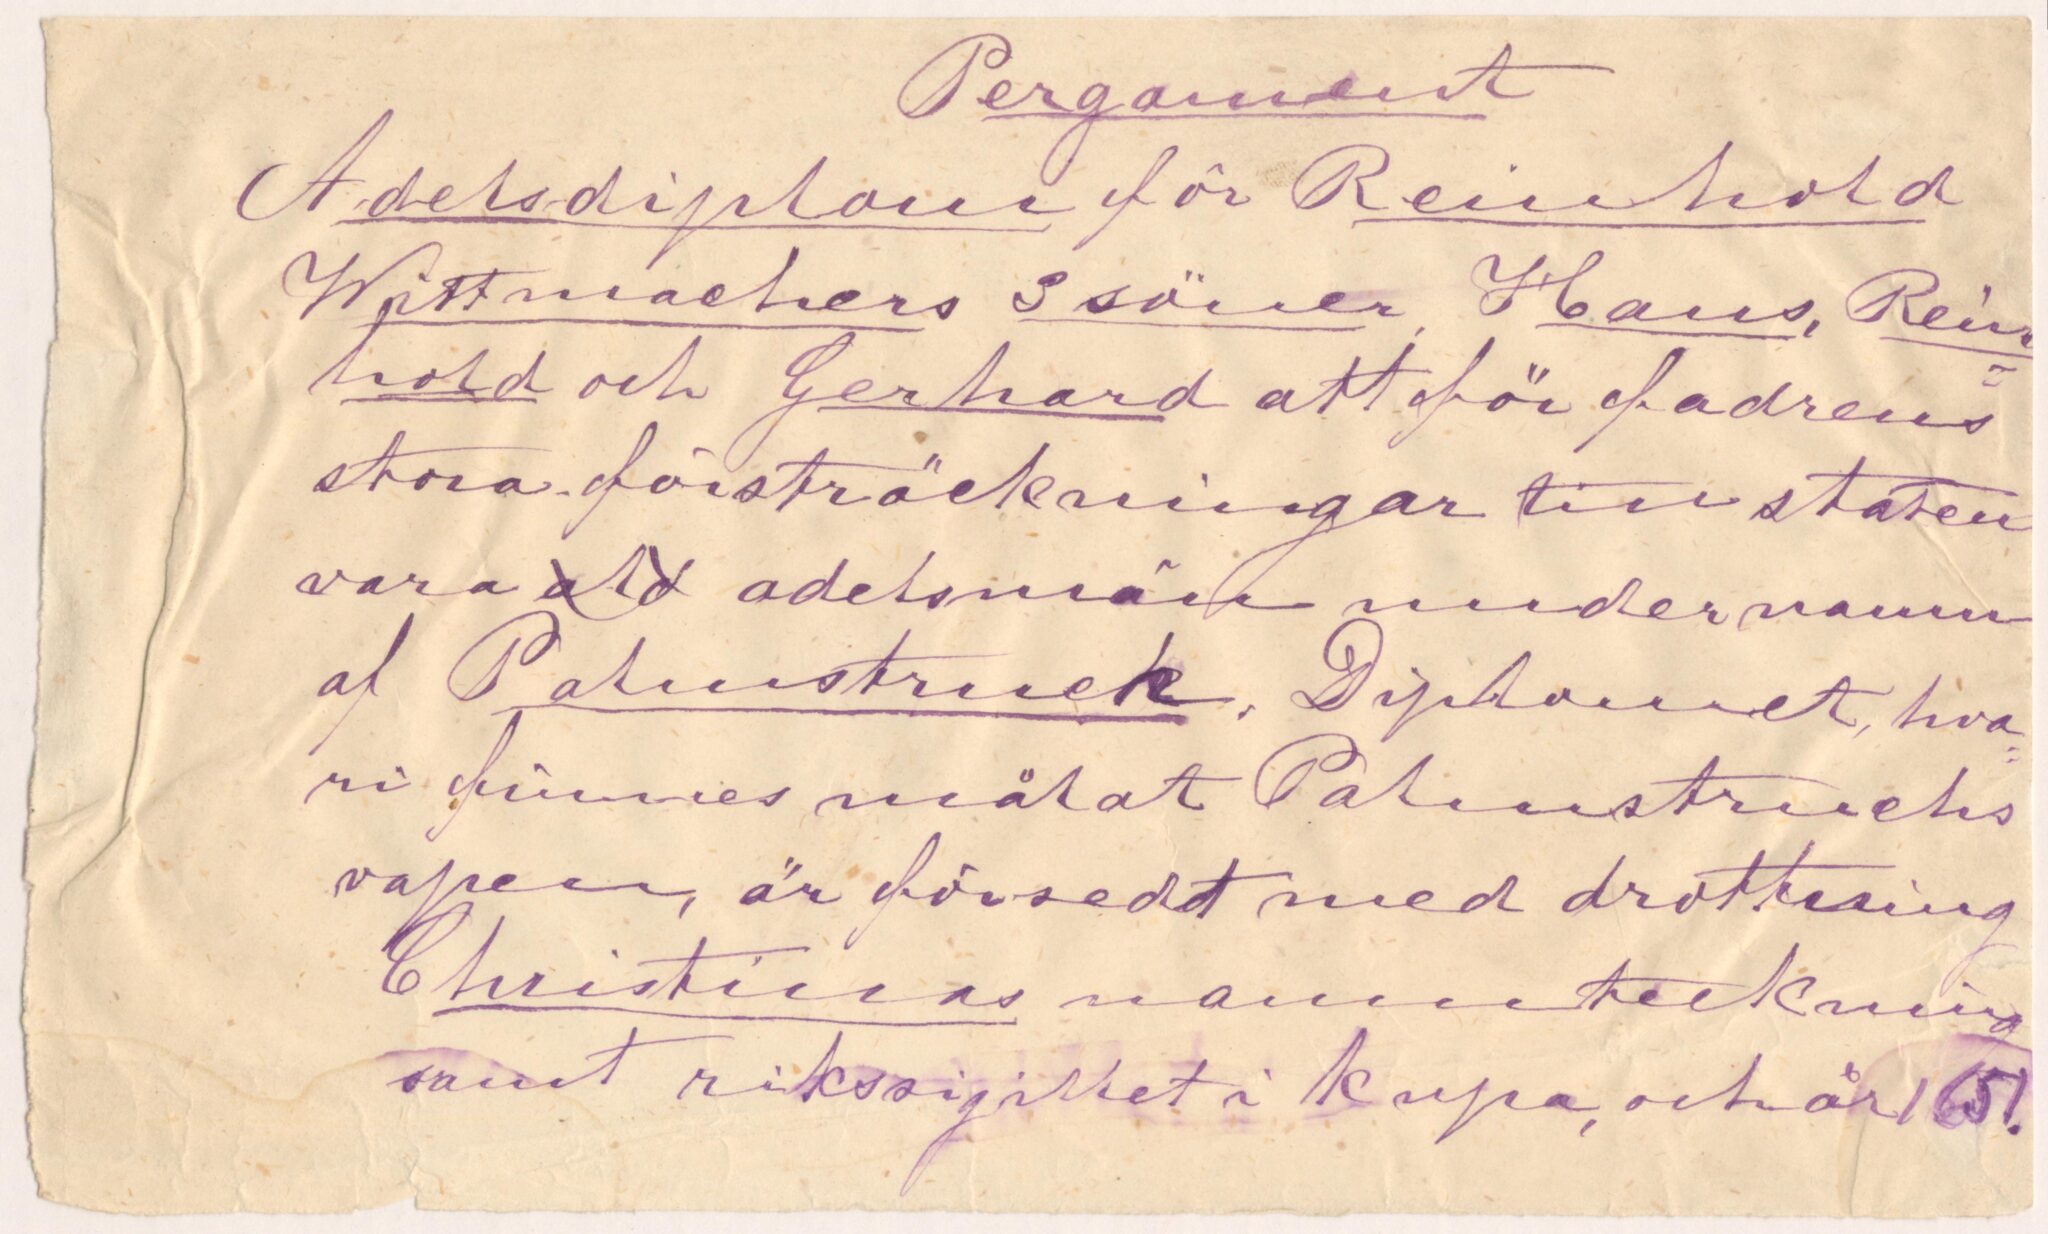 Pergament
Adelsdiplom för Reinhold
Wittmachers 3 söner, Hans, Rein=
hold och Gerhard att för fadrens
stora försträckningar till staten
vara adelsmän under namn
af Palmstruck. Diplomet, hva=
ri finnes målat Palmstruchs
vapen, är försedt med drottning
Christinas namnteckning
samt rikssigillet i kupa, och är 1651.